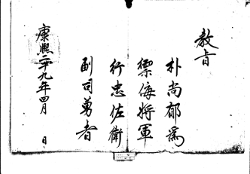 教旨
朴尚郁爲
禦侮將軍
行忠佐衛
副司勇者
康熙二十九年四月 日